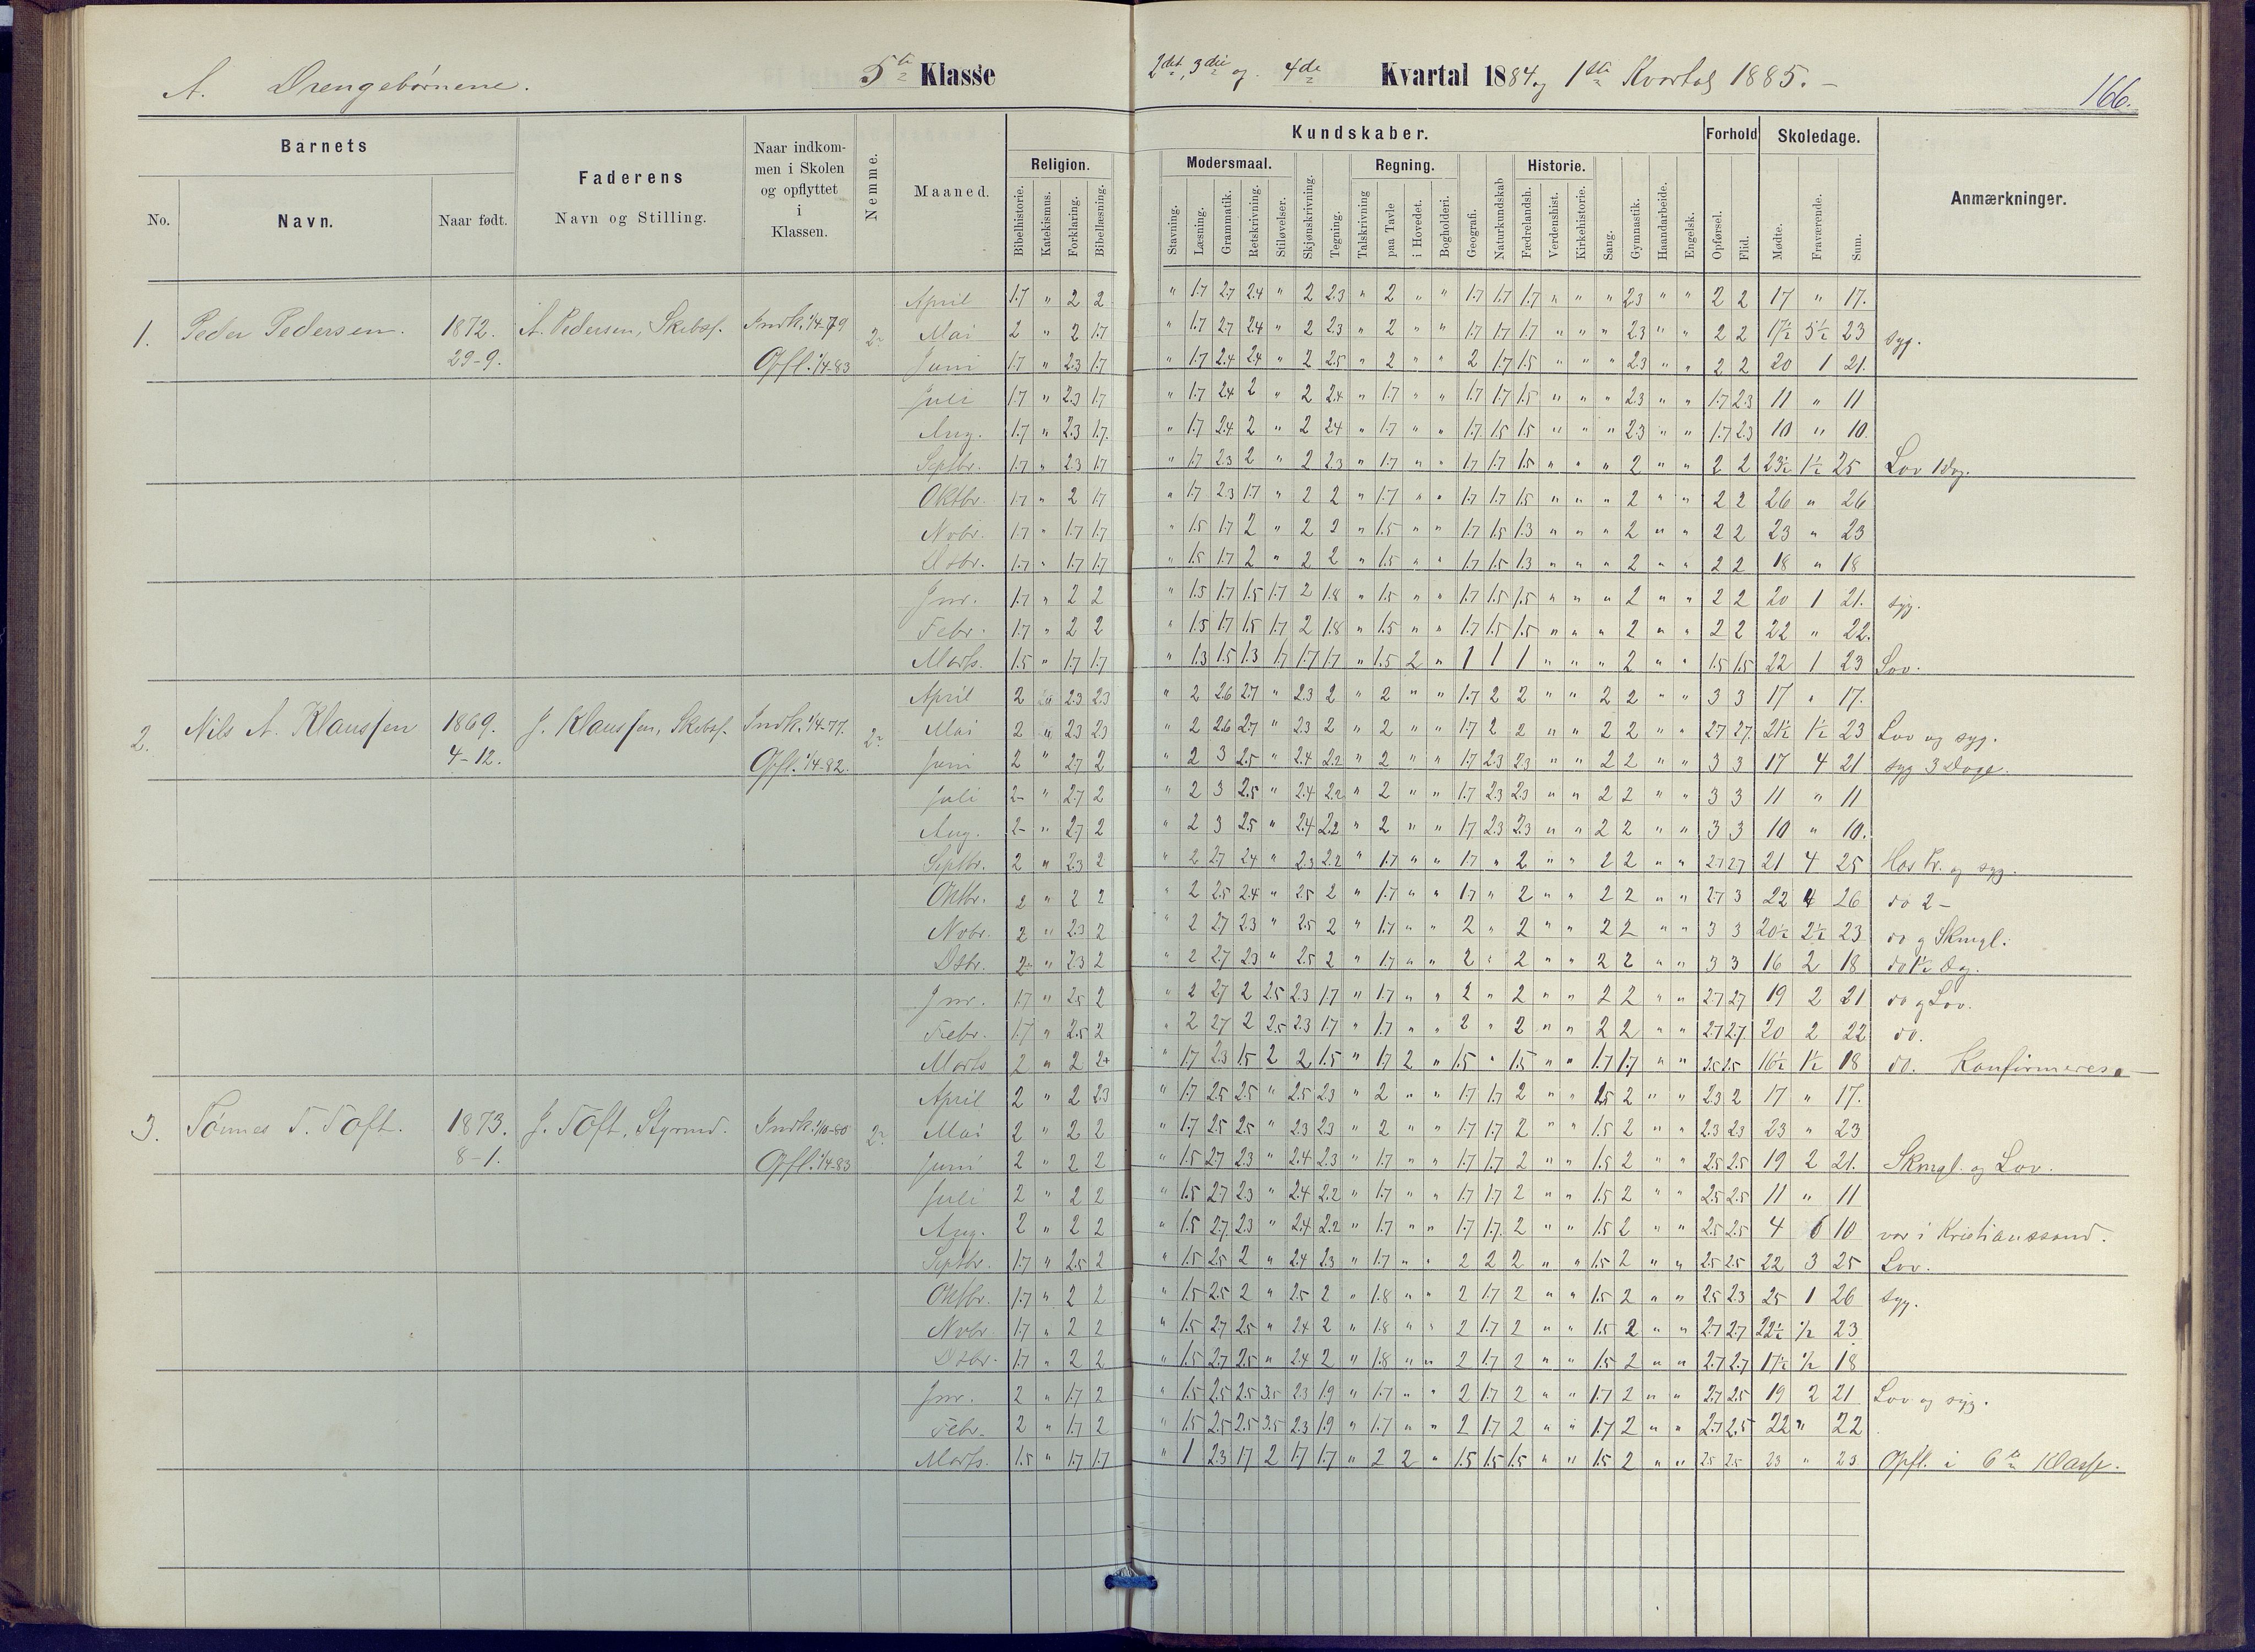 A. Drengebørnene. 5te Klasse 2det, 3die og 4de Kvartal 1884 og 1ste Kvartal 1885. 166.
Barnets
No. Navn. Naar født.
Faderens
Navn og Stilling.
Naar indkom-
men i Skolen
og opflyttet
i
Klassen.
Nemme.
Maaned.
Religion.
Bibelhistorie. Katekismus. Forklaring. Bibellæsning.
Kundskaber.
Modersmaal.
Stavning. Læsning. Grammatik. Retskrivning. Stiløvelser.
Skjønskrivning. Tegning.
Regning.
Talskrivning paa Tavle i Hovedet. Bogholderi.
Geografi. Naturkundskab
Historie.
Fædrelandsh. Verdenshist. Kirkehistorie.
Sang. Gymnastik. Haandarbeide. Engelsk.
Forhold
Opførsel. Flid.
Skoledage.
Mødte. Fraværende. Sum.
Anmærkninger.
April 1.7 " 2 2 " 1.7 2.7 2.4 " 2 2.3 " 2 " " 1.7 1.7 1.7 " " " 2.3 " " 2 2 17 " 17.
1. Peder Pedersen. 1872. A. Pedersen, Skibsf. Indk. 1/4-79 2 Mai 2 " 2 1.7 " 1.7 2.7 2.4 " 2 2.3 " 2 " " 1.7 1.7 1.7 " " " 2.3 " " 2 2 17½ 5½ 23 syg.
29-9. Opfl. 1/4-83 Juni 1.7 " 2.3 1.7 " 1.7 2.4 2.4 " 2 2.5 " 2 " " 2 1.7 1.5 " " " 2.3 " " 2 2 20 1 21.
Juli 1.7 " 2.3 1.7 " 1.7 2.4 2 " 2 2.4 " 1.7 " " 1.7 1.7 1.5 " " " 2.3 " " 1.7 2.3 11 " 11
Aug. 1.7 " 2.3 1.7. " 1.7 2.4 2 " 2 2.4 " 1.7 " " 1.7 1.5 1.5 " " " 2.3 " " 1.7 2.3 10 " 10.
Septbr. 1.7 " 2.3 1.7 " 1.7 2.3 2 " 2 2.3 " 1.7 " " 1.7 1.7 1.5 " " " 2 " " 2 2 23½ 1½ 25 Lov 1 Dag.
Oktbr. 1.7 " 2 1.7 " 1.7 2.3 1.7 " 2 2 " 1.7 " " 1.7 1.7 1.5 " " " 2 " " 2 2 26 " 26
Novbr. 1.7 " 1.7 1.7 " 1.5 1.7 2 " 2 2 " 1.5 " " 1.7 1.5 1.3 " " " 2 " " 2 2 23 " 23
Dsbr. 1.7 " 1.7 1.7 " 1.5 1.7 2 " 2 2 " 1.5 " " 1.7 1.5 1.3 " " " 2 " " 2 2 18 " 18
Jnr. 1.7 " 2 2 " 1.5 1.7 1.5 1.7 2 1.8 " 1.5 " " 1.7 1.5 1.5 " " " 2 " " 2 2 20 1 21. syg.
Febr. 1.7 " 2 2 " 1.5 1.7 1.5 1.7 2 1.8 " 1.5 " " 1.7 1.5 1.5 " " " 2 " " 2 2 22 " 22.
Marts. 1.5 " 1.7 1.7 " 1.3 1.5 1.3 1.7 1.7 1.7 " 1.5 2 " 1 1 1 " " " 2 " " 1.5 1.5 22 1 23 Lov.
April 2 2.3 2.3 " 2 2.6 2.7 " 2.3 2 " 2 " " 1.7 2 2 " " 2 2 " " 3 3 17 " 17.
2. Nils A. Klaussen 1869. J. Klaussen, Skibsf. Indk. 1/4-77. 2 Mai 2 " 2.3 2.3 " 2 2.6 2.7 " 2.3 2 " 2 " " 1.7 2 2 " " 2 2 " " 2.7 2.7. 21½ 1½ 23 Lov og syg.
4-12. Opfl. 1/4-82. Juni 2 " 2.7 2 " 2 3 2.5 " 2.4 2.2 " 2 " " 1.7 2.3 2.3 " " 2 2 " " 3 3 17 4 21 syg 3 Dage.
Juli 2 " 2.7 2 " 2 3 2.5 " 2.4 2.2 " 2 " " 1.7 2.3 2.3 " " 2 2 " " 3 3 11 " 11
Aug. 2 " 2.7 2 " 2 3 2.5 " 2.4 2.2 " 2 " " 1.7 2.3 2.3 " " 2 2 " " 3 3 10 " 10.
Septbr. 2 " 2.3 2 " 2 2.7 2.4 " 2.3 2.2 " 1.7 " " 1.7 " 2 " " 2 2 " " 2.7 2.7 21 4 25 Hos Pr. og syg.
Oktbr. 2 " 2 2 " 2 2.5 2.4 " 2.5 2 " 1.7 " " 1.7 " 2 " " 2 2 " " 2.7 3 22 4 26 do 2 -
Novbr. 2 " 2.3 2 " 2 2.7 2.3 " 2.5 2 " 1.7 " " 2 " 2 " " 2 2 " " 3 3 20½ 2½ 23 do og Skmgl.
Dsbr. 2 " 2.3 2 " 2 2.7 2.3 " 2.5 2 " 1.7 " " 2 " 2 " " 2 2 " " 3 3 16 2 18 do 1½ Dg.
Jnr. 1.7 " 2.5 2 " 2 2.7 2 2.5 2.3 1.7 " 1.7 " " 2 " 2 " " 2 2 " " 2.7 2.7 19 2 21 do og Lov.
Febr. 1.7 " 2.5 2 " 2 2.7 2 2.5 2.3 1.7 " 1.7 " " 2 " 2 " " 2 2 " " 2.7 2.7. 20 2 22 do.
Marts 2 " 2 2+ " 1.7 2.3 1.5 2 2 1.5 " 1.7 2 " 1.5 " 1.5 " " 1.7 1.7 " " 2.5 2.5 16½ 1½ 18 do. Konfirmeres.
April 2 " 2 2.3 " 1.7 2.5 2.5 " 2.5 2.3 " 2 " " 1.7 1.7 2 " " 1.5 2 " " 2.3 2 17 " 17.
3. Tønnes T. Toft. 1873. J. Toft, Styrmd. Indk. 1/10-80 2 Mai 2 " 2 2 " 1.7 2.5 2.5 " 2.3 2.3 " 2 " " 1.7 1.7 2 " " 1.5 2 " " 2.3 2.3 23 " 23
8-1. Opfl. 1/4-83 Juni 2 " 2 2 " 1.5 2.7 2.3 " 2.4 2.3 " 1.7 " " 1.7 1.7 2 " " 1.5 2 " " 2.5 2.5 19 2 21. Skmgl. og Lov.
Juli 2 " 2 2 " 1.5 2.7 2.3 " 2.4 2.2 " 1.7 " " 1.7 1.7 2 " " 1.5 2 " " 2.5 2.5 11 " 11
Aug. 2 " 2 2 " 1.5 2.7 2.3 " 2.4 2.2 " 1.7 " " 1.7 1.7. 2 " " 1.5 2 " " 2.5 2.5 4 6 10 var i Kristianssand.
Septbr. 1.7 " 2.5 2 " 1.5 2.5 2 " 2.4 2.3 " 1.7 " " 2 2 2 " " 1.5 2 " " 2.5 2.5 22 3 25 Lov.
Oktbr. 1.7 " 2 2 " 1.5 2.5 2 " 2.5 2 " 1.8 " " 2 1.7 2 " " 1.5 2 " " 2.5 2.3 25 1 26 syg.
Novbr. 1.7 " 2 2 " 1.5 2.7 2.5 " 2.4 2 " 1.8 " " 2 1.7 2 " " 1.5 2 " " 2.7 2.7 22½ ½ 23
Dsbr. 1.7 " 2 2 " 1.5 2.7 2.5 " 2.4 2 " 1.8 " " 2 1.7 2 " " 1.5 2 " " 2.7 2.7 17½ ½ 18
Jnr. 2 " 1.7 2 " 1.5 2.5 2.5 3.5 2.3 1.9 " 1.7 " " 2 1.7 2 " " 1.7 2 " " 2.7 2.5 19 2 21 Lov og syg.
Febr. 2 " 1.7 2 " 1.5 2.5 2.5 3.5 2.3 1.9 " 1.7 " " 2 1.7 2 " " 1.7 2 " " 2.7 2.5 22 " 22
Marts. 1.5 " 1.7 1.7 " 1 2.3 1.7 2 1.7 1.7 " 2 2 " 1.5 1.5 1.5 " " 1.5 2 " " 2.5 2.5 23 " 23 Opfl. i 6te Klasse.